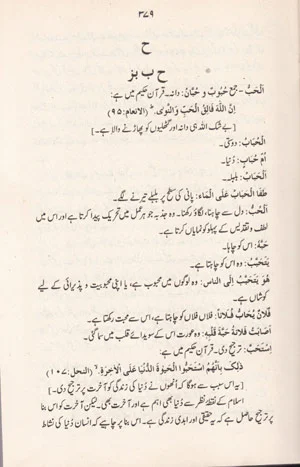 ۳۷۹
ح
ح ب بز
اَلْحَبُّ - جمع حُبُوبٌ و حُبَّانٌ: دانہ۔ قرآن حکیم میں ہے:
اِنَّ اللّٰهَ فَالِقُ الْحَبِّ وَالنَّوٰی ؕ (الانعام: ۹۵)
[بے شک اللہ ہی دانہ اور گٹھلیوں کو پھاڑنے والا ہے۔]
اَلْحُبَابُ: دوستی۔
اُمُّ حُبَابٍ: دُنیا۔
اَلْحَبَابُ: بلبلے۔
طَفَا الْحَبَابُ عَلَی الْمَاءِ: پانی کی سطح پر بلبلے تیرنے لگے۔
اَلْحُبُّ: دل سے چاہنا، لگاؤ رکھنا۔ وہ جذبہ جو ہر عمل میں تحریک پیدا کرتا ہے اور اس میں
لطف و تقدیس کے پہلو کو نمایاں کرتا ہے۔
حَبَّهُ: اس کو چاہا۔
یَتَحَبَّبُ: وہ اس کو چاہتا ہے۔
هُوَ یَتَحَبَّبُ اِلَی النَّاسِ: وہ لوگوں میں محبوب ہے، یا اپنی محبوبیت و پذیرائی کے لیے
کوشاں ہے۔
فُلَانٌ یُحَابُّ فُلَاناً: فلاں فلاں کو چاہتا ہے، اس سے محبت رکھتا ہے۔
اَصَابَتْ فُلَانَةُ حَبَّةَ قَلْبِهٖ: وہ عورت اس کے سویدائے قلب میں سما گئی۔
اِسْتَحَبَّ: ترجیح دی۔ قرآن حکیم میں ہے:
ذٰلِكَ بِاَنَّهُمُ اسْتَحَبُّوا الْحَیٰوةَ الدُّنْیَا عَلَی الْاٰخِرَةِ ۙ (النحل: ۱۰۷)
[یہ اس سبب سے ہوگا کہ اُنھوں نے دُنیا کی زندگی کو آخرت پر ترجیح دی۔]
اسلام کے نقطۂ نظر سے دُنیا بھی اہم ہے اور آخرت بھی۔ لیکن آخرت کو اس بنا
پر ترجیح حاصل ہے کہ یہ حقیقی اور ابدی زندگی ہے۔ اس بنا پر چاہیے کہ انسان دُنیا کی نشاط